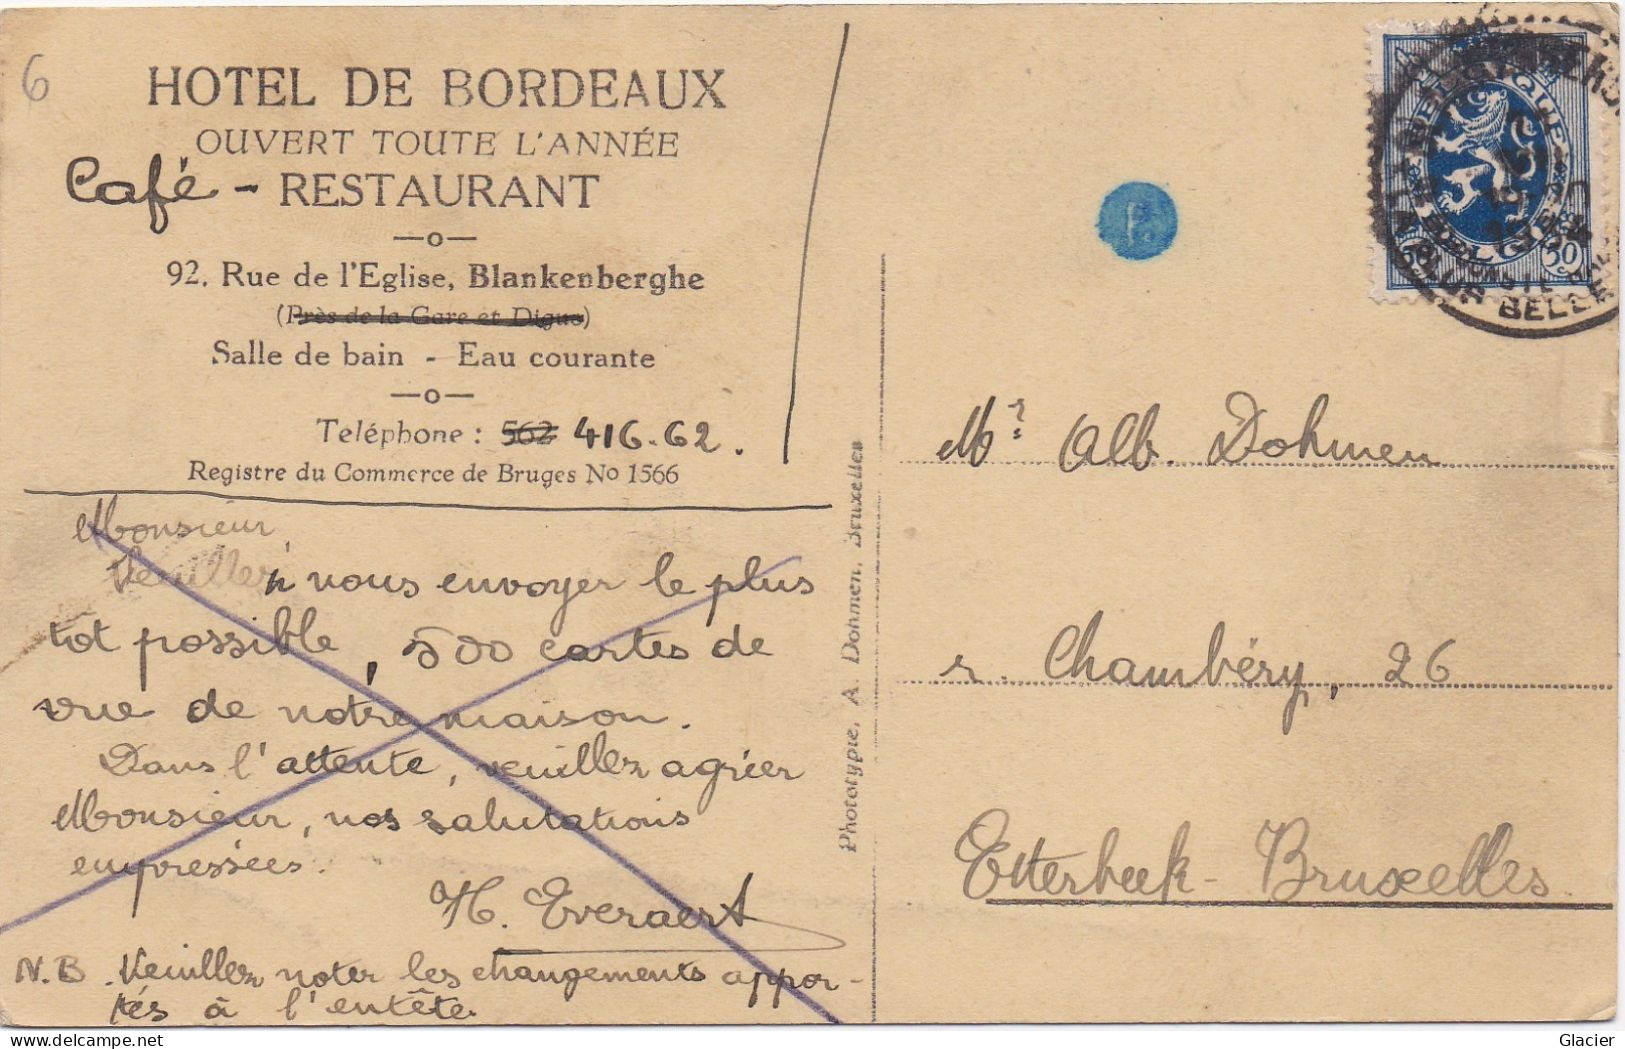 6
HOTEL DE BORDEAUX
OUVERT TOUTE L'ANNÉE
Café - RESTAURANT
92, Rue de l'Eglise, Blankenberghe
(Près de la Gare et Digue)
Salle de bain - Eau courante
Teléphone : 562 416.62.
Registre du Commerce de Bruges No 1566
Monsieur,
Veuillez nous envoyer le plus
tot possible, 500 cartes de
vue de notre maison.
Dans l'attente, veuillez agréer
Monsieur, nos salutations
empressées.
H. Everaert
N.B. Veuillez noter les changements appor-
tés à l'entête
Phototypie, A. Dohmen, Bruxelles
BELGIQUE
BELGIË
50
Mr. Alb. Dohmen
r. Chambéry, 26
Etterbeek - Bruxelles
Glacier